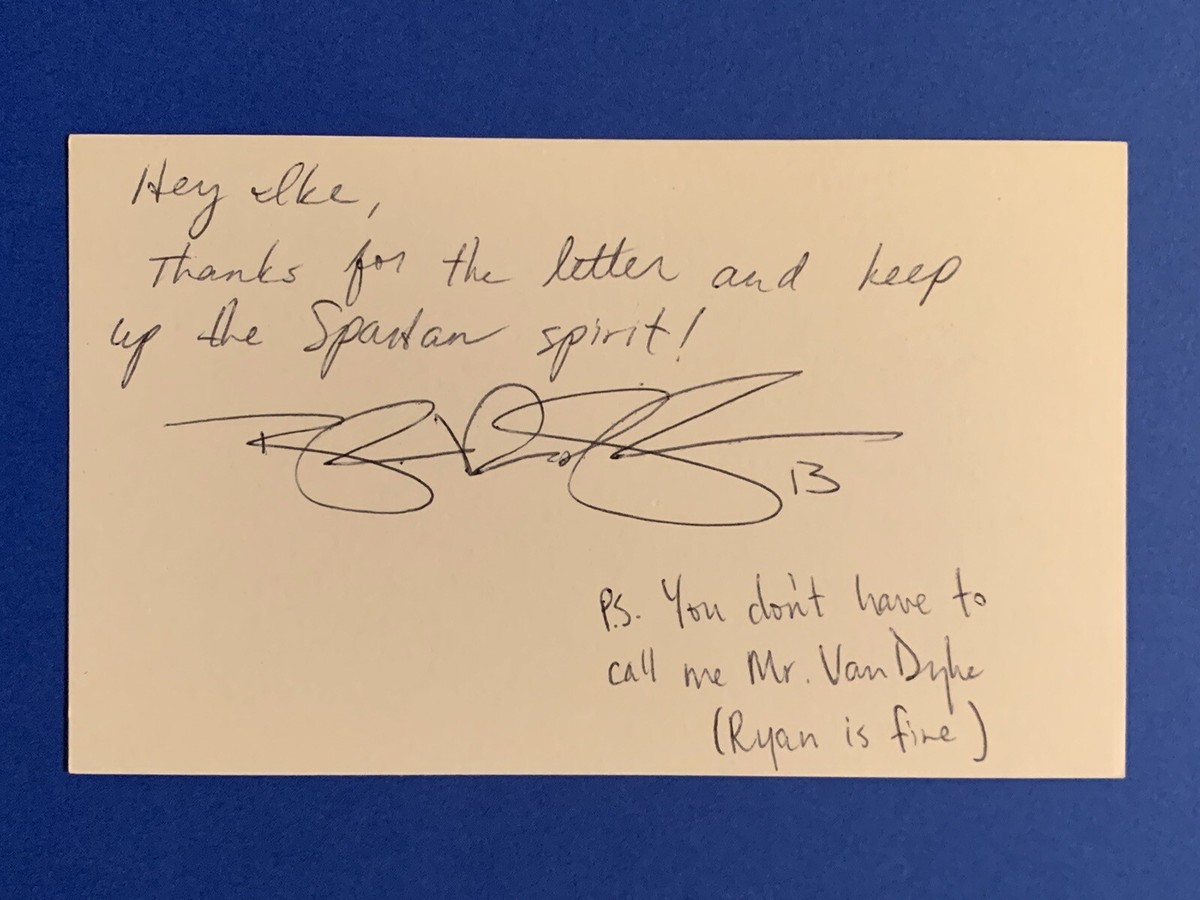 Hey Ike,
Thanks for the letter and keep
up the Spartan spirit!
13
P.S. You don't have to
call me Mr. Van Dyke
(Ryan is fine)